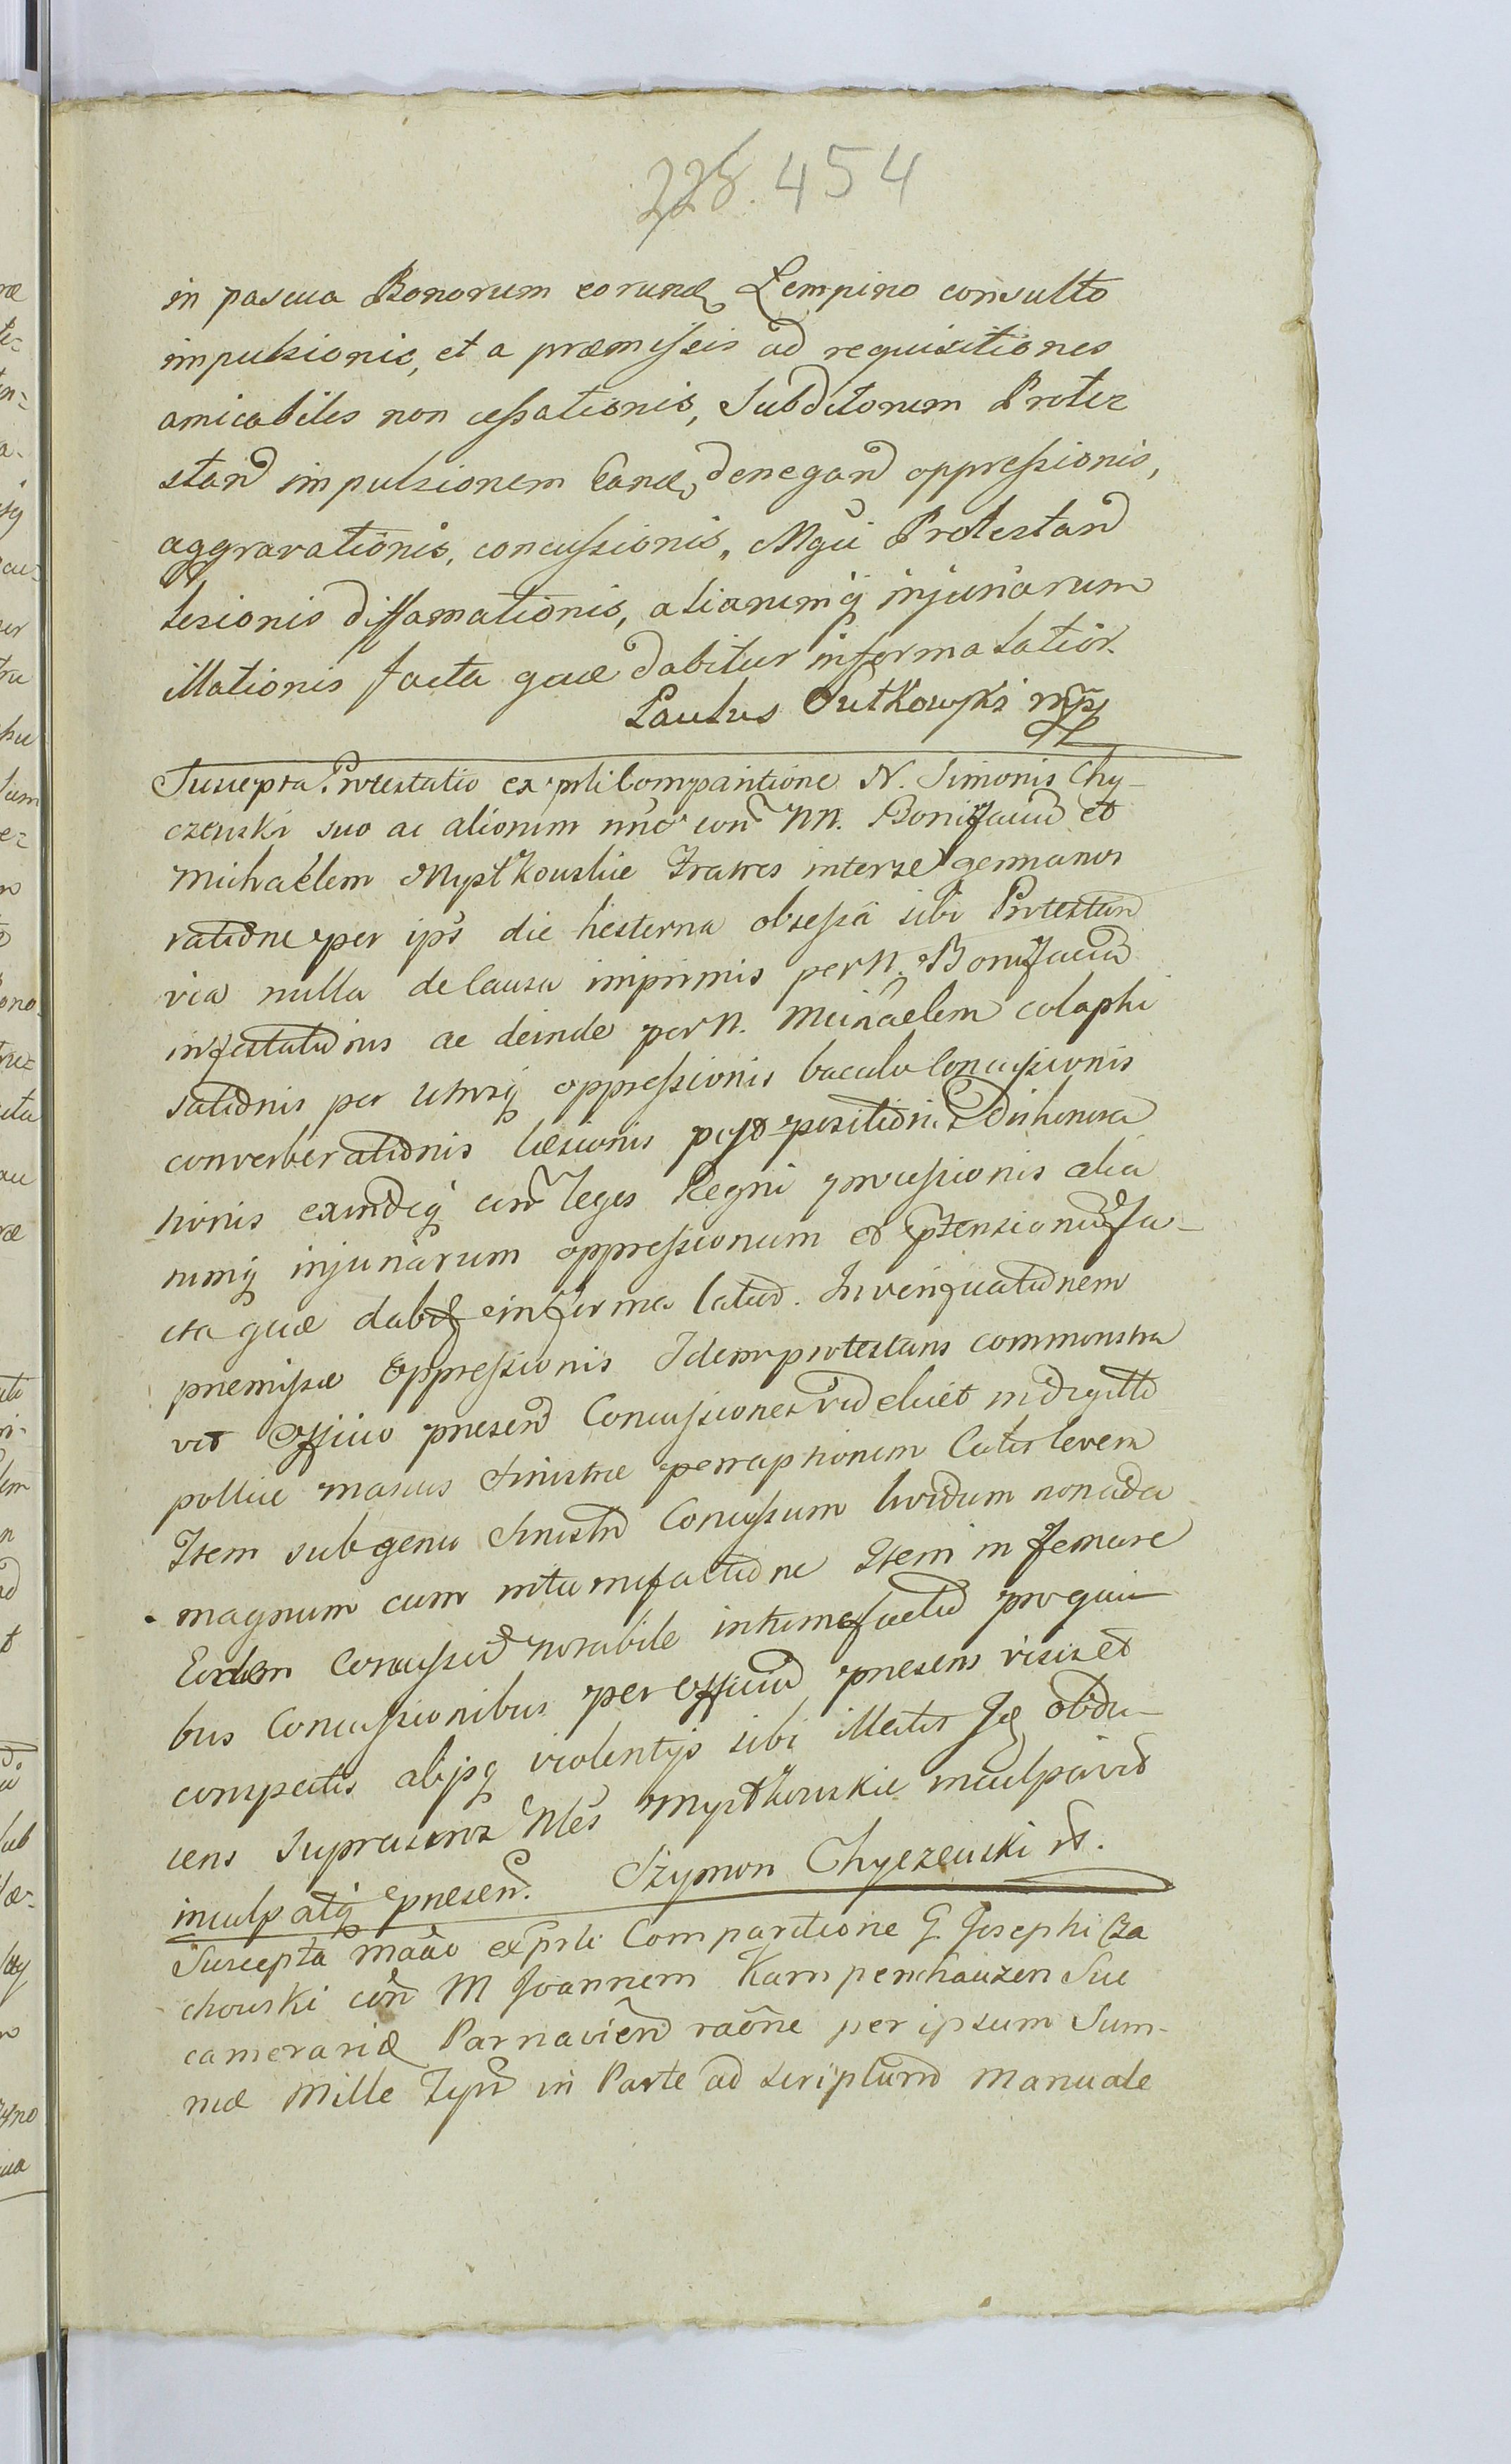 228. 454
in pascua Bonorum eorund Lempino consulto
impulsionis, et a præmissis ad requisitiones
amicabiles non cessationis, Subditorum Protes
stand impulsionem Eand denegand oppressionis,
aggravationis, concussionis, Mgci Protestand
lesionis diffamationis, aliarumq injuriarum
illationis facta quæ dabitur in forma latior.
Paulus Sutkowski mp
Suscepta Protestatio ex psli Comparitione N. Simonis Chy-
czewski suo ac aliorum nne con NN. Bonifacium et
Michaëlem Mystkowskie Fratres inter se germanos
ratione per ips die hesterna obsessa sibi Protestan
via nulla de Causa inprimis per N. Bonifaciu
infestationis ac deinde per N. Michaelem colaphi
sationis per utrosq oppressionis baculo Concussionis
converberationis læsionis post positionis Dishonora
tionis exindeq con leges Regni processionis alia
rumq injuriarum oppressionum et ptensionu fa-
cta quæ dabit in forma latio. In verificationem
premissæ Oppressionis Idem protestans commonstra
vit Officio presen Concussiones videlicet in digitto
pollice manus Sinistræ perraptionem Cutis levem
Item sub genu Sinistro Concussum lividum non ada
magnum cum intumefactione Item in femore
Eodem Concussio notabile intumefactio pro qui-
bus Concussionibus per Officiu presens visis et
conspectis alijsq violentijs sibi illatis Je obdu-
cens supranos Nles Mystkowskie inculpavit
inculpatq presen. Szymon Chyczewski
Suscepta maao ex psli Comparitione G. Josephi Za
chowski con M Joannem Kampenchauzen Suc
camerarid Parnavien raone per ipsum Sum-
mæ Mille Tyn in Parte ad scriptum Manuale